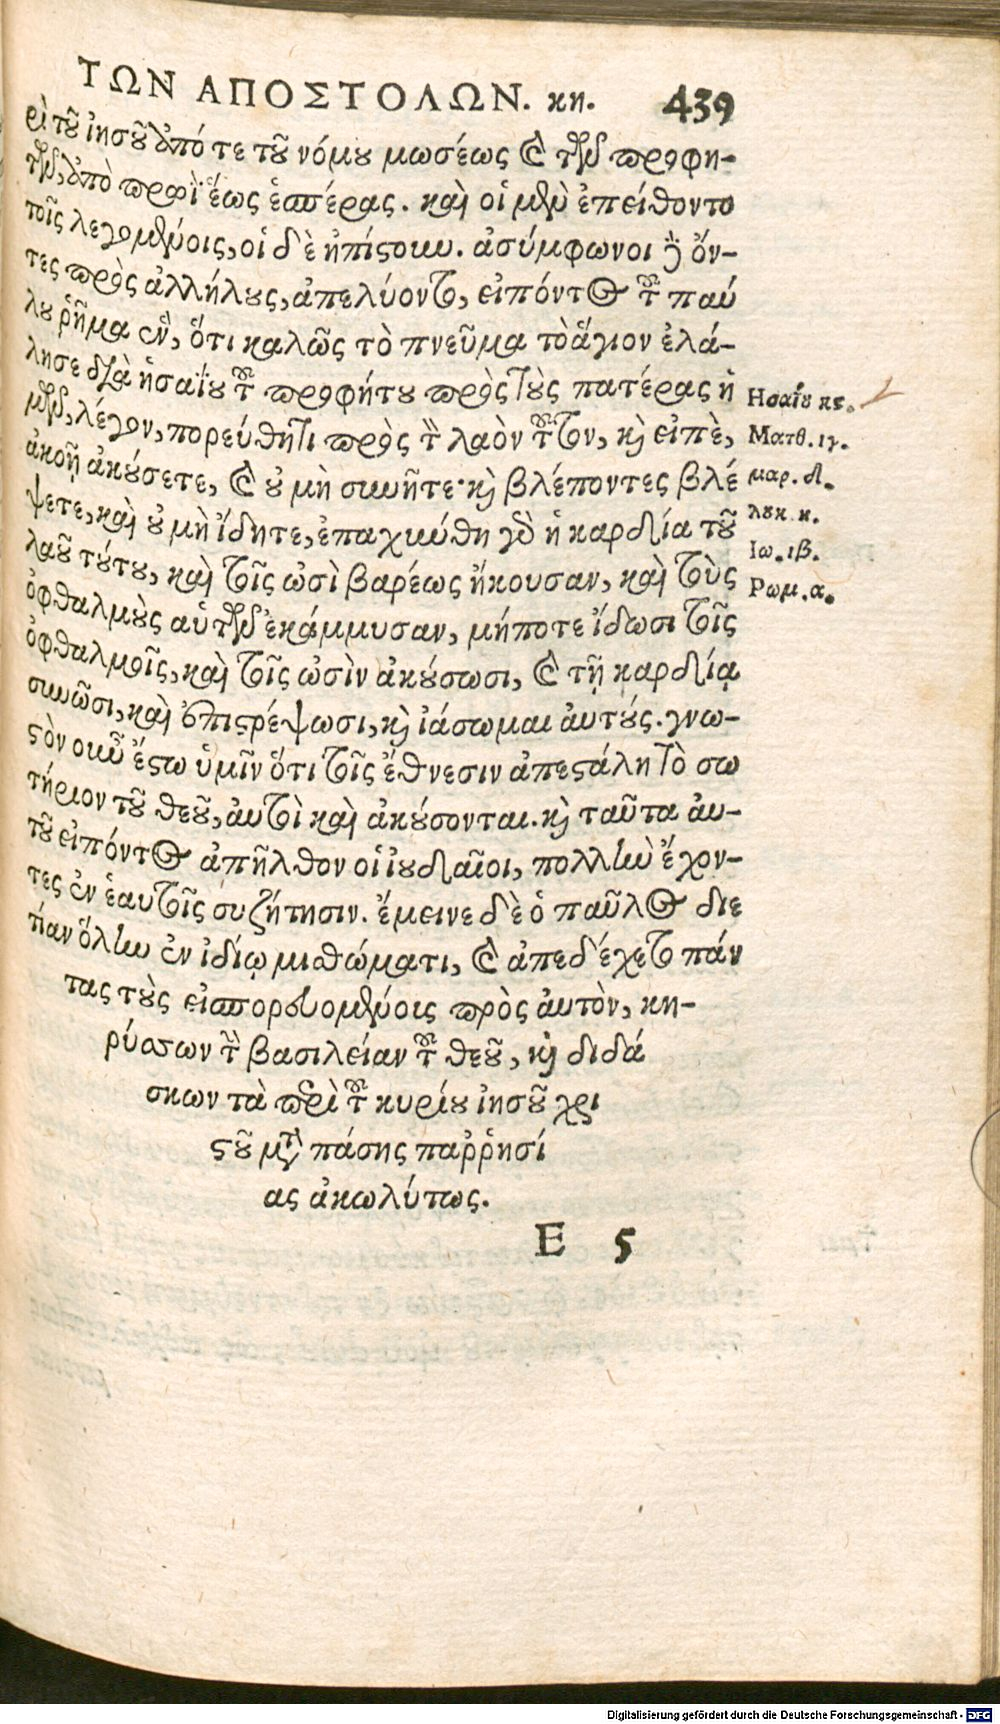 ΤΩΝ ΑΠΟΣΤΟΛΩΝ. κη. 439
ρὶ τοῦ ἰησοῦ ἀπό τε τοῦ νόμου μωσέως καὶ τῶν προφη-
τῶν, ἀπὸ πρωῒ ἕως ἑσπέρας. καὶ οἱ μὲν ἐπείθοντο
τοῖς λεγομένοις, οἱ δὲ ἠπίστουν. ἀσύμφωνοι δὲ ὄν-
τες πρὸς ἀλλήλους, ἀπελύοντο, εἰπόντος τοῦ παύ
λου ῥῆμα ἓν, ὅτι καλῶς τὸ πνεῦμα τὸ ἅγιον ἐλά-
λησε διὰ ἡσαΐου τοῦ προφήτου πρὸς τοὺς πατέρας ἡ
μῶν, λέγον, πορεύθητι πρὸς τὸν λαὸν τοῦτον, καὶ εἰπὲ,
ἀκοῇ ἀκούσετε, καὶ οὐ μὴ συνῆτε· καὶ βλέποντες βλέ
ψετε, καὶ οὐ μὴ ἴδητε, ἐπαχύνθη γὰρ ἡ καρδία τοῦ
λαοῦ τούτου, καὶ τοῖς ὠσὶ βαρέως ἤκουσαν, καὶ τοὺς
ὀφθαλμοὺς αὑτῶν ἐκάμμυσαν, μήποτε ἴδωσι τοῖς
ὀφθαλμοῖς, καὶ τοῖς ὠσὶν ἀκούσωσι, καὶ τῇ καρδίᾳ
συνῶσι, καὶ ἐπιστρέψωσι, καὶ ἰάσωμαι αὐτούς. γνω-
στὸν οὖν ἔστω ὑμῖν ὅτι τοῖς ἔθνεσιν ἀπεστάλη τὸ σω
τήριον τοῦ θεοῦ, αὐτοὶ καὶ ἀκούσονται. καὶ ταῦτα αὐ-
τοῦ εἰπόντος ἀπῆλθον οἱ ἰουδαῖοι, πολλὴν ἔχον-
τες ἐν ἑαυτοῖς συζήτησιν. ἔμεινε δὲ ὁ παῦλος διε
τίαν ὅλην ἐν ἰδίῳ μισθώματι, καὶ ἀπεδέχετο πάν
τας τοὺς εἰσπορευομένους πρὸς αὐτὸν, κη-
ρύσσων τὴν βασιλείαν τοῦ θεοῦ, καὶ διδά
σκων τὰ περὶ τοῦ κυρίου ἰησοῦ χρι
στοῦ μετὰ πάσης παῤῥησί
ας ἀκωλύτως.
E 5
Ησαΐου κς.
Ματθ. ιγ.
μαρ. δ.
λουκ. κ.
Ιω. ιβ.
Ρωμ. α.
Digitalisierung gefördert durch die Deutsche Forschungsgemeinschaft - DFG